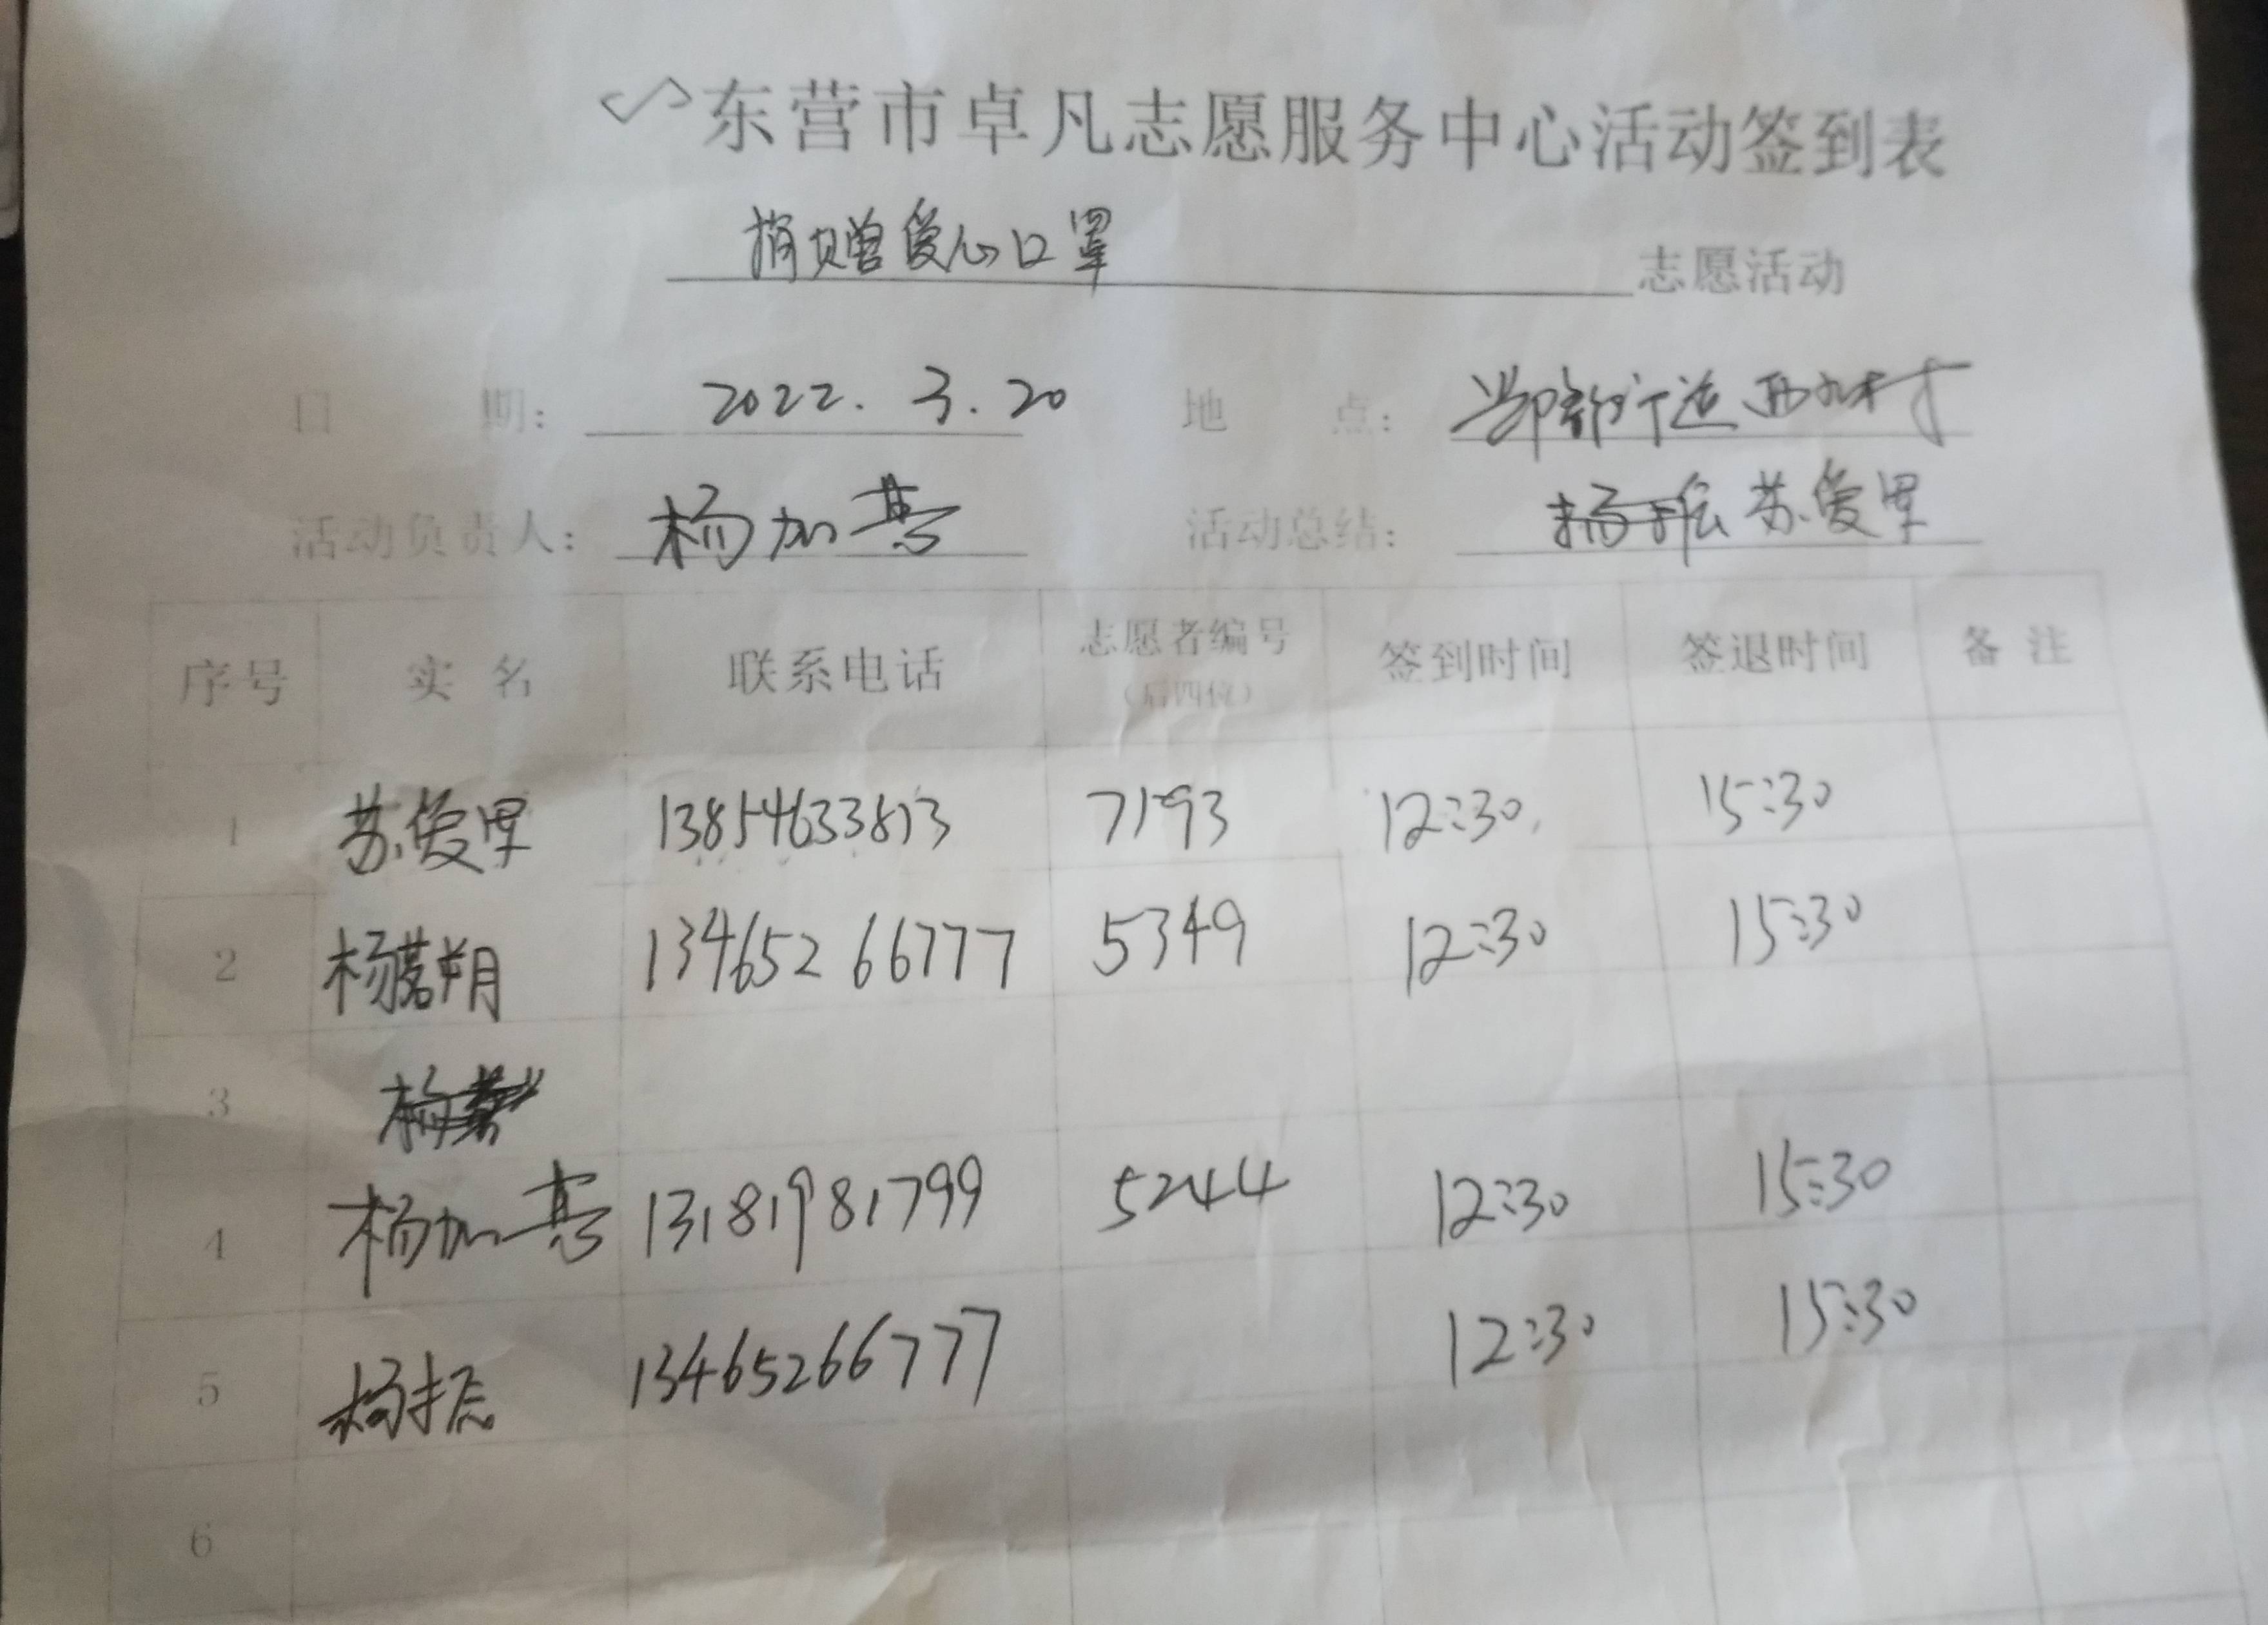 东营市卓凡志愿服务中心活动签到表
捐赠爱心口罩 志愿活动
日期： 2022.3.20 地点： 街道西 村
活动负责人： 杨加 活动总结： 苏俊
序号 实名 联系电话 志愿者编号（后四位） 签到时间 签退时间 备注
1 苏 13854633813 7193 12:30 15:30
2 杨茗朔 13465266777 5349 12:30 15:30
3
4 杨加 13181981799 5244 12:30 15:30
5 杨振 13465266777 12:30 15:30
6